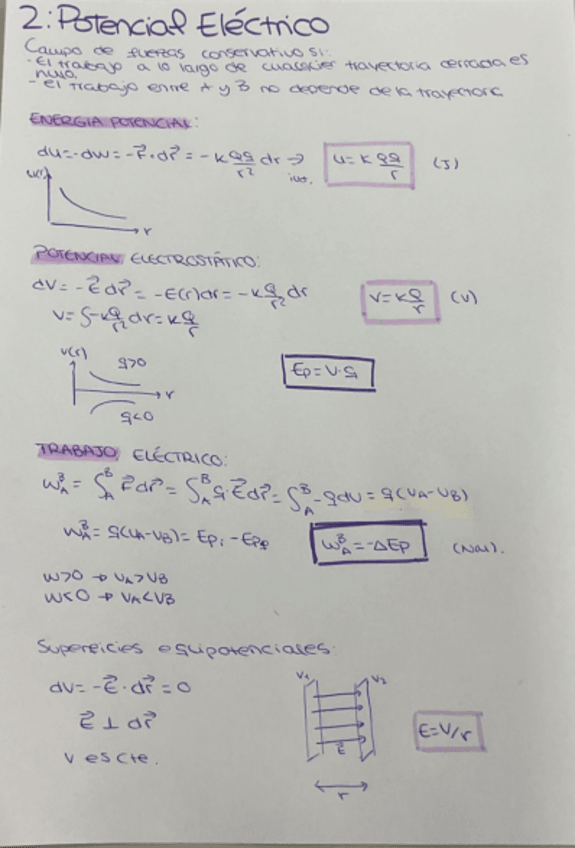 2: Potencial Eléctrico
Campo de fuerzas conservativo si:
- El trabajo a lo largo de cualquier trayectoria cerrada es
nulo.
- el trabajo entre A y B no depende de la trayectoria
ENERGIA POTENCIAL:
du=-dw=-F⃗·dr⃗ = -k Qq/r² dr → int. u= k Qq/r (J)
u(r)
r
POTENCIAL ELECTROSTÁTICO:
dV= -E⃗ dr⃗ = -E(r)dr= -k Q/r² dr V=k Q/r (V)
V= ∫-k Q/r² dr= k Q/r
V(r)
q>0
r
q<0
Ep=V·q
TRABAJO ELÉCTRICO:
W_A^B = ∫_A^B F⃗ dr⃗ = ∫_A^B q·E⃗ dr⃗ = ∫_A^B -qdV = q(VA-VB)
W_A^B = q(VA-VB)= Epi -Epf W_A^B =-ΔEp (Nm).
W>0 → VA>VB
W<0 → VA<VB
Superficies equipotenciales:
dV= -E⃗·dr⃗ =0
E⃗ ⊥ dr⃗
V es cte.
V1 V2
E⃗
r
E=V/r